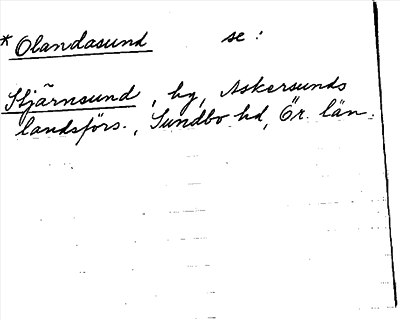 * Olandasund se:
Stjärnsund, hg, Askersunds
landsförs., Sundbo hd, Ör. län.